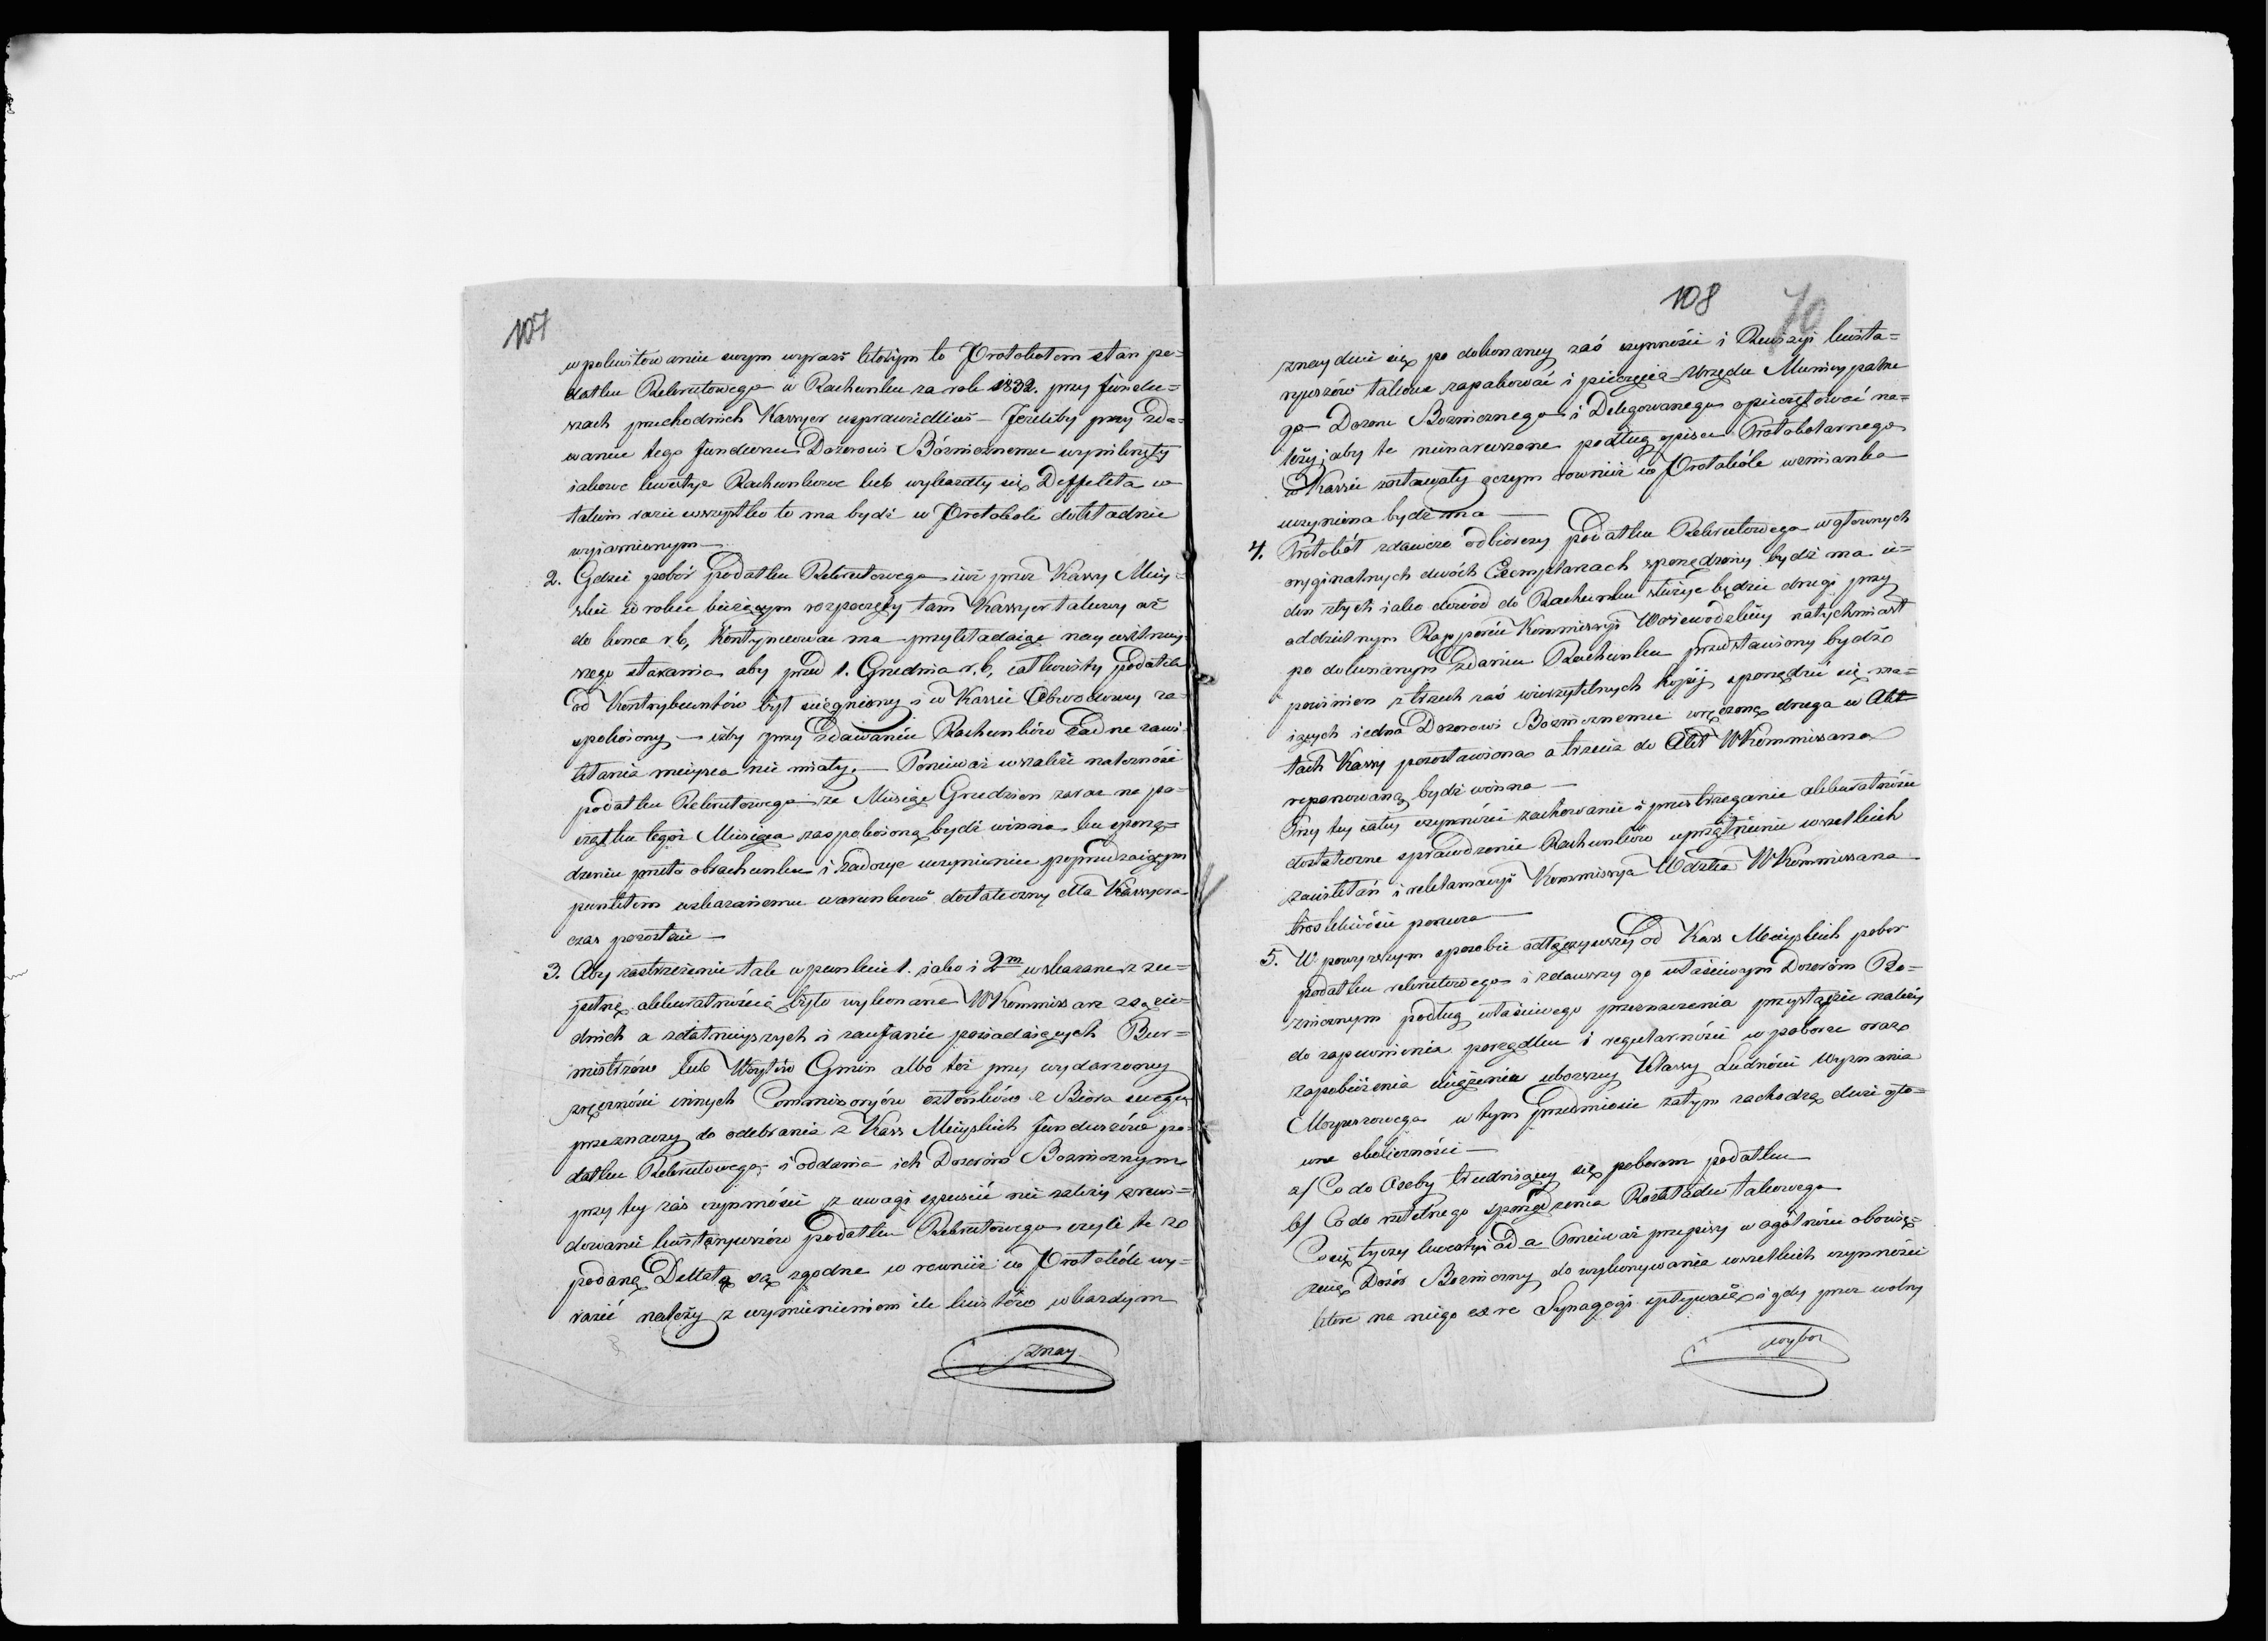 107
w pokwitowaniu swym wyrazi którym to Protokołom stan po=
datku Rekrutowego w Rachunku za rok 1832. przy fundu=
szach przechodnich Kassyer usprawiedliwi – Jeżeliby przy zda=
waniu tego funduszu Dozorowi Bóżnicznemu wyniknęły
iakowe kwestye Rachunkowe lub wykazały się Deffekta w
takim razie wszystko to ma bydź w Protokole dokładnie
wyiaśnionym –
2. Gdzie pobór podatku Rekrutowego iuż przez Kassy Miey=
skie w roku bieżącym rozpoczęty tam Kassyer takowy aż
do końca r.b. kontynuować ma przykładaiąc nayusilniey=
szego starania aby przed 1. Grudnia r.b. całkowity podatek
od Kontrybuentów był ściągniony i w Kassie Obwodowey za=
spokoiony – iżby przy zdawaniu Rachunków żadne zawi=
kłania mieysca nie miały. – Ponieważ wszakże należność
podatku Rekrutowego za Miesiąc Grudzień zaraz na po=
czątku tegoż Miesiąca zaspokoioną bydź winna ku sporzą=
dzeniu przeto obrachunku i zadosyć uczynieniu poprzedzaiącym
punktem wskazanemu warunkowi dostateczny dla Kassyera
czas pozostaie –
3. Aby zastrzeżenie tak w punkcie 1. iako i 2m wskazane z zu=
pełną akkuratnością było wykonane WKommissarz ieden
dnich a zdatnieyszych i zaufanie posiadaiących Bur=
mistrzów lub Wóytów Gmin albo też przy wydarzoney
zręczności innych Commissoryów członków z Bióra swego
przeznaczy do odebrania z Kass Mieyskich funduszów po=
datku Rekrutowego i oddania ich Dozorom Bożnicznym
przy tey zaś czynności z uwagi spuścić nie należy zrewi=
dowanie kwitaryuszów podatku Rekrutowego czyli te ze
podaną Dellatą są zgodne w rownież w Protokóle wy=
razić należy z wymienieniem ile kwitów w każdym
znay
108
70
znayduie się po dokonaney zaś czynności i Rewizyi kwita=
ryuszów takowe zapakować i pieczęcią Urzędu Municypalne
go Dozoru Bożnicznego i Delegowanego opieczętować na=
leży, aby te nienaruszone podług opisu Protokolarnego
w Kassie zostawały oczym rownież w Protokóle wzmianka
uczyniona bydź ma –
4. Protokół zdawczo odbiorczy podatku Rekrutowego w głownych
oryginalnych dwóch Exemplarzach sporządzony bydź ma ie=
den z tych iako dowód do Rachunku służyć będzie drugi przy
oddzielnym Rapporcie Kommissyi Woiewódzkiey natychmiast
po dokonanym zdaniu Rachunku przedstawiony bydź
powinien z trzech zaś wierzytelnych kopiy sporządzić się ma=
iących iedna Dozorowi Bożnicznemu wręczoną druga w Ak=
tach Kassy pozostawiona a trzecia do Akt WKommissarza
reponowaną bydź winna –
Przy tey całey czynności zachowanie i przestrzeganie akkuratności
dostateczne sprawdzenie Rachunków uprzątnienie wszelkich
zawikłań i reklamacyi Kommissya Wdzka WKommissarza
troskliwości porucza –
5. W powyższym sposobie odłączywszy od Kass Mieyskich pobor
podatku rekrutowego i zdawszy go właściwym Dozorom Bo=
żnicznym podług właściwego przeznaczenia przystąpić należy
do zapewnienia porządku i regularności w poborze oraz
zapobieżenia uciążenia uboższey Klassy Ludności Wyznania
Moyżeszowego w tym przedmiocie zatym zachodzą dwie głó=
wne okoliczności –
a/ Co do Osoby trudniącey się poborem podatku –
b/ Co do rzetelnego sporządzenia Rozkładu takowego
Co się tyczy kwestyi ad a Ponieważ przepisy w ogólności obowią=
zuią Dozór Bożniczny do wykonywania wszelkich czynności
które na niego co re Synagogi wpływaią i gdy przez wolny
wybor